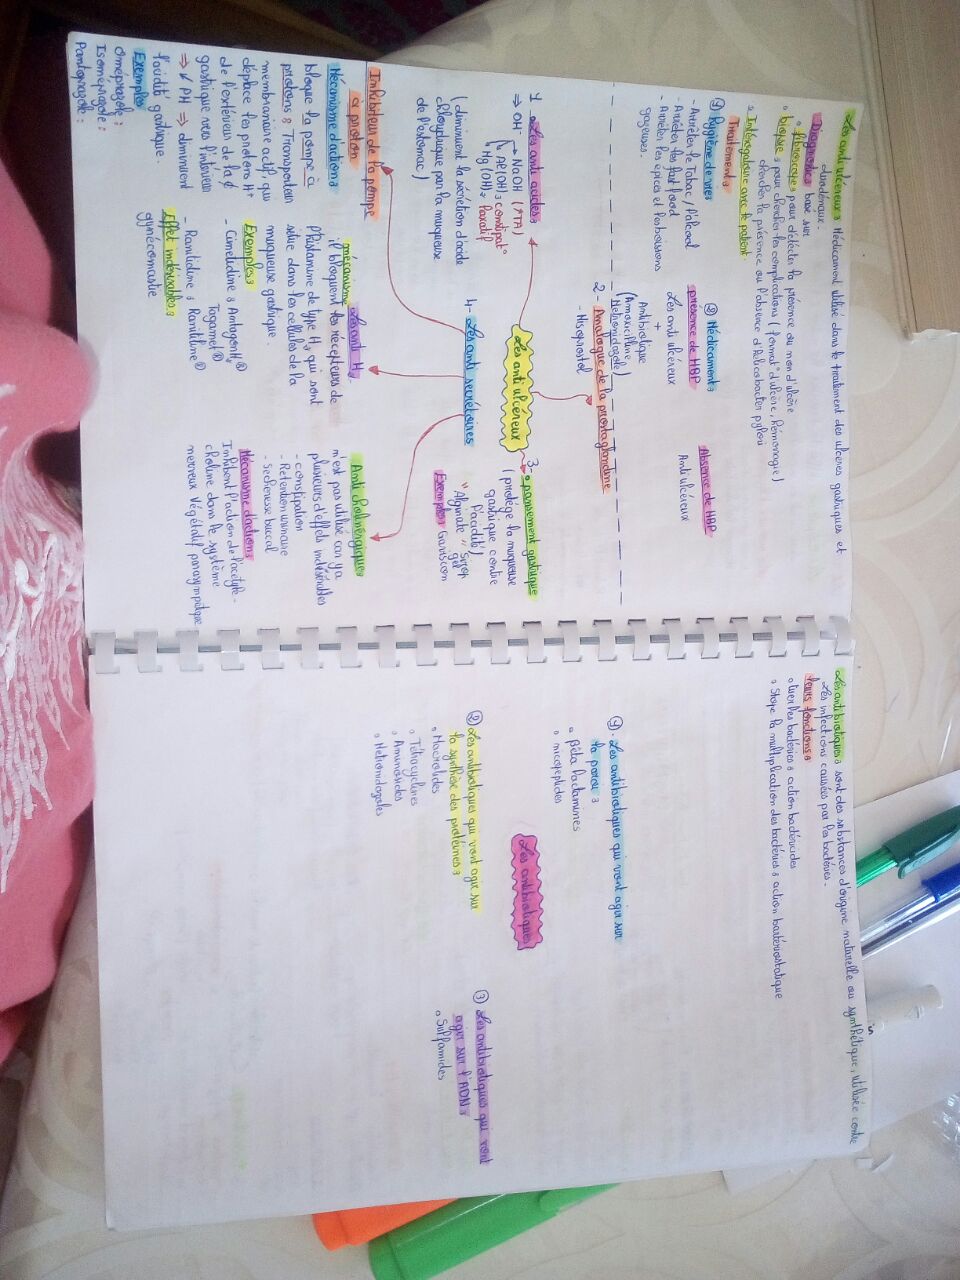 Les anti ulcéreux : Médicament utilisé dans le traitement des ulcères gastriques et
duodénaux.
Diagnostics basé sur
• fibroscope : pour détecter la présence ou non d'ulcère
• biopsie : pour chercher les complications (format° d'ulcère, hémorragie)
chercher la présence ou l'absence d'hélicobacter pylori
• Intérrogatoire avec le patient.
Traitement :
① hygiène de vie :
- Arrêter le Tabac / l'alcool
- Arrêter les fast food
- Arrêter les épices et les boissons
gazeuses.
② Médicament :
présence de HBP
Les anti ulcéreux
+
Antibiotique
(Amoxicilline,
Metronidazole)
Absence de HBP
Anti ulcéreux
Les anti ulcéreux
1. Les anti acides :
⇒ OH⁻ → NaOH (HTA)
Al(OH)₃ constipat°
Mg(OH)₂ laxatif
(diminuent la sécrétion d'acide
chloydrique par la muqueuse
de l'estomac)
2- Analogue de la prostaglandine
- Misoprostol
3. pansement gastrique
(protège la muqueuse
gastrique contre
l'acidité)
" Alginate " sirop
gel
Exemple : Gaviscon
4- Les anti secrétoires
Inhibiteur de la pompe
à proton
Mécanisme d'action :
bloque la pompe à
protons : Transporteur
membranaire actif, qui
déplace les protons H⁺
de l'extérieur de la ¢
gastrique vers l'intérieur
⇒ ↗ PH ⇒ diminuent
l'acidité gastrique.
Exemples
oméprazole :
Isoméprazole :
Pantoprazole :
Les anti H₂
mécanisme
il bloquent les récepteurs de
l'histamine de type H₂ qui sont
situé dans les cellules de la
muqueuse gastrique.
Exemples :
- Cimetidine : AntagonH₂ ®
Tagamet ®
- Ranitidine : Ranitiline ®
Effet indésirables :
gynécomastie
Anti cholinergiques
n'est pas utilisé car ya
plusieurs d'effets indésirables
- constipation
- Retention urinaire
- Secheresse buccal
Mécanisme d'action :
Inhibent l'action de l'acétyle-
choline dans le système
nerveux végétatif parasympatique
Les antibiotiques : sont des substances d'origine naturelle ou synthétique, utilisée contre
les infections causées par les bactéries.
leurs fonctions :
• tuer les bactéries : action bactéricides
• Stope la multiplication des bactéries : action bactériostatique
Les antibiotiques
①. Les antibiotiques qui vont agir sur
la paroi :
• Bêta lactamines
• nicopeptides
② Les antibiotiques qui vont agir sur
la synthèse des protéines :
• Macrolides
• Tétracyclines
• Aminosides
• Metronidazoles
③ Les antibiotiques qui vont
agir sur l'ADN :
• Sulfamides